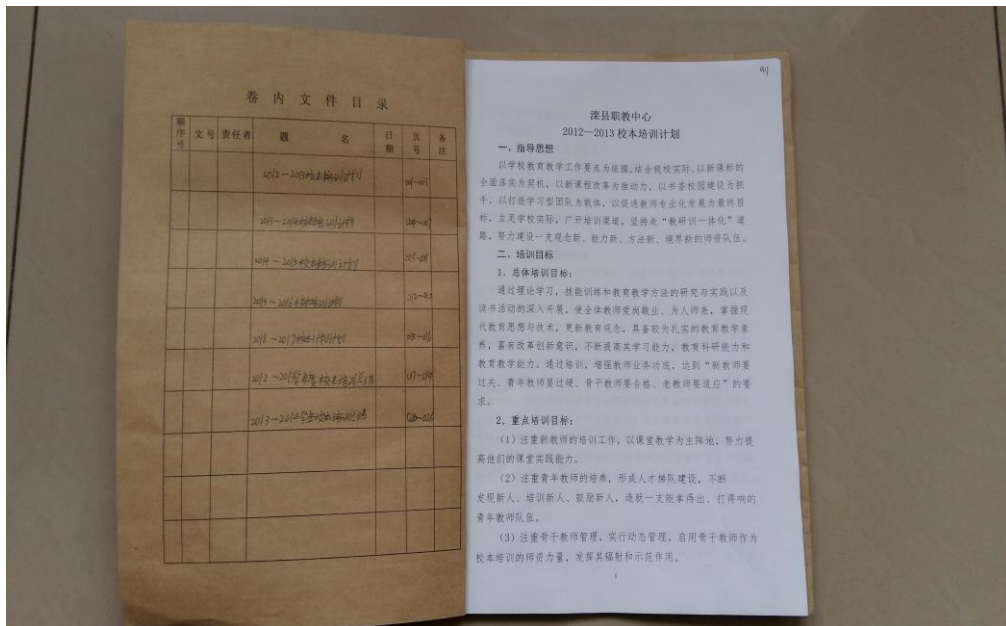 卷内文件目录
顺序号 文号 责任者 题名 日期 页号 备注
2012-2013校本培训计划
2013-2014校本培训计划
2014-2015校本培训计划
2015-2016校本培训计划
2016-2017
2012-2013学年度校本培训总结
2013-2014学年校本培训总结
001
滦县职教中心
2012—2013 校本培训计划
一、指导思想
以学校教育教学工作要点为依据,结合我校实际,以新课标的
全面落实为契机，以新课程改革为推动力，以书香校园建设为抓
手，以打造学习型团队为载体，以促进教师专业化发展为最终目
标，立足学校实际，广开培训渠道，坚持走“教研训一体化”道
路，努力建设一支观念新、能力新、方法新、境界新的师资队伍。
二、培训目标
1、总体培训目标：
通过理论学习，技能训练和教育教学方法的研究与实践以及
读书活动的深入开展，使全体教师爱岗敬业、为人师表，掌握现
代教育思想与技术，更新教育观念，具备较为扎实的教育教学素
养，富有改革创新意识，不断提高其学习能力、教育科研能力和
教育教学能力。通过培训，增强教师业务功底，达到“新教师要
过关、青年教师要过硬、骨干教师要合格、老教师要适应”的要
求。
2、重点培训目标：
（1）注重新教师的培训工作，以课堂教学为主阵地，努力提
高他们的课堂实践能力。
（2）注重青年教师的培养，形成人才梯队建设，不断
发现新人、培训新人、鼓励新人，造就一支能拿得出、打得响的
青年教师队伍。
（3）注重骨干教师管理，实行动态管理，启用骨干教师作为
校本培训的师资力量，发挥其辐射和示范作用。
1